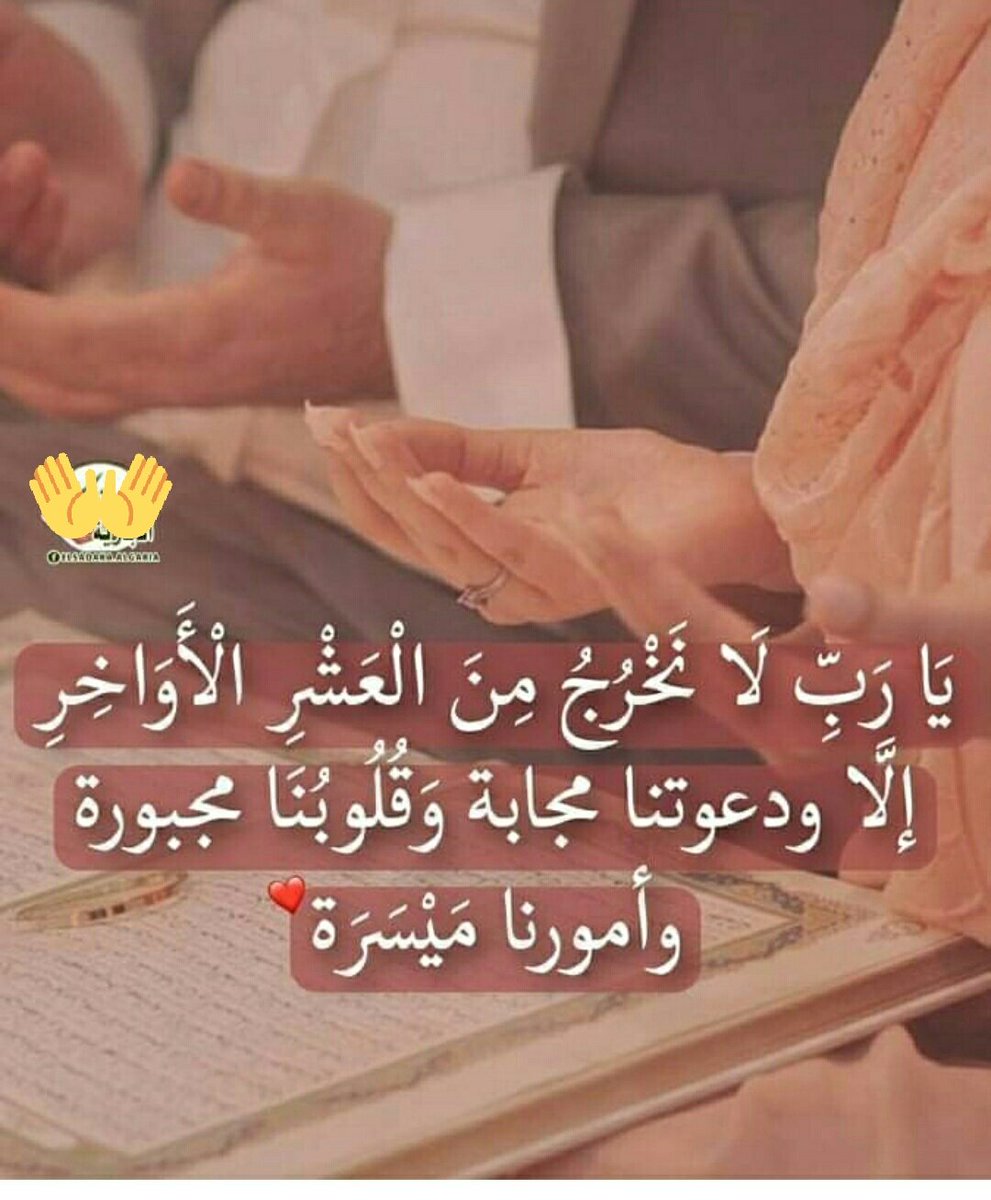 يَا رَبِّ لَا نَخْرُجُ مِنَ الْعَشْرِ الْأَوَاخِرِ
إلَّا ودعوتنا مجابة وَقُلُوبُنَا مجبورة
وأمورنا مَيْسَرَة